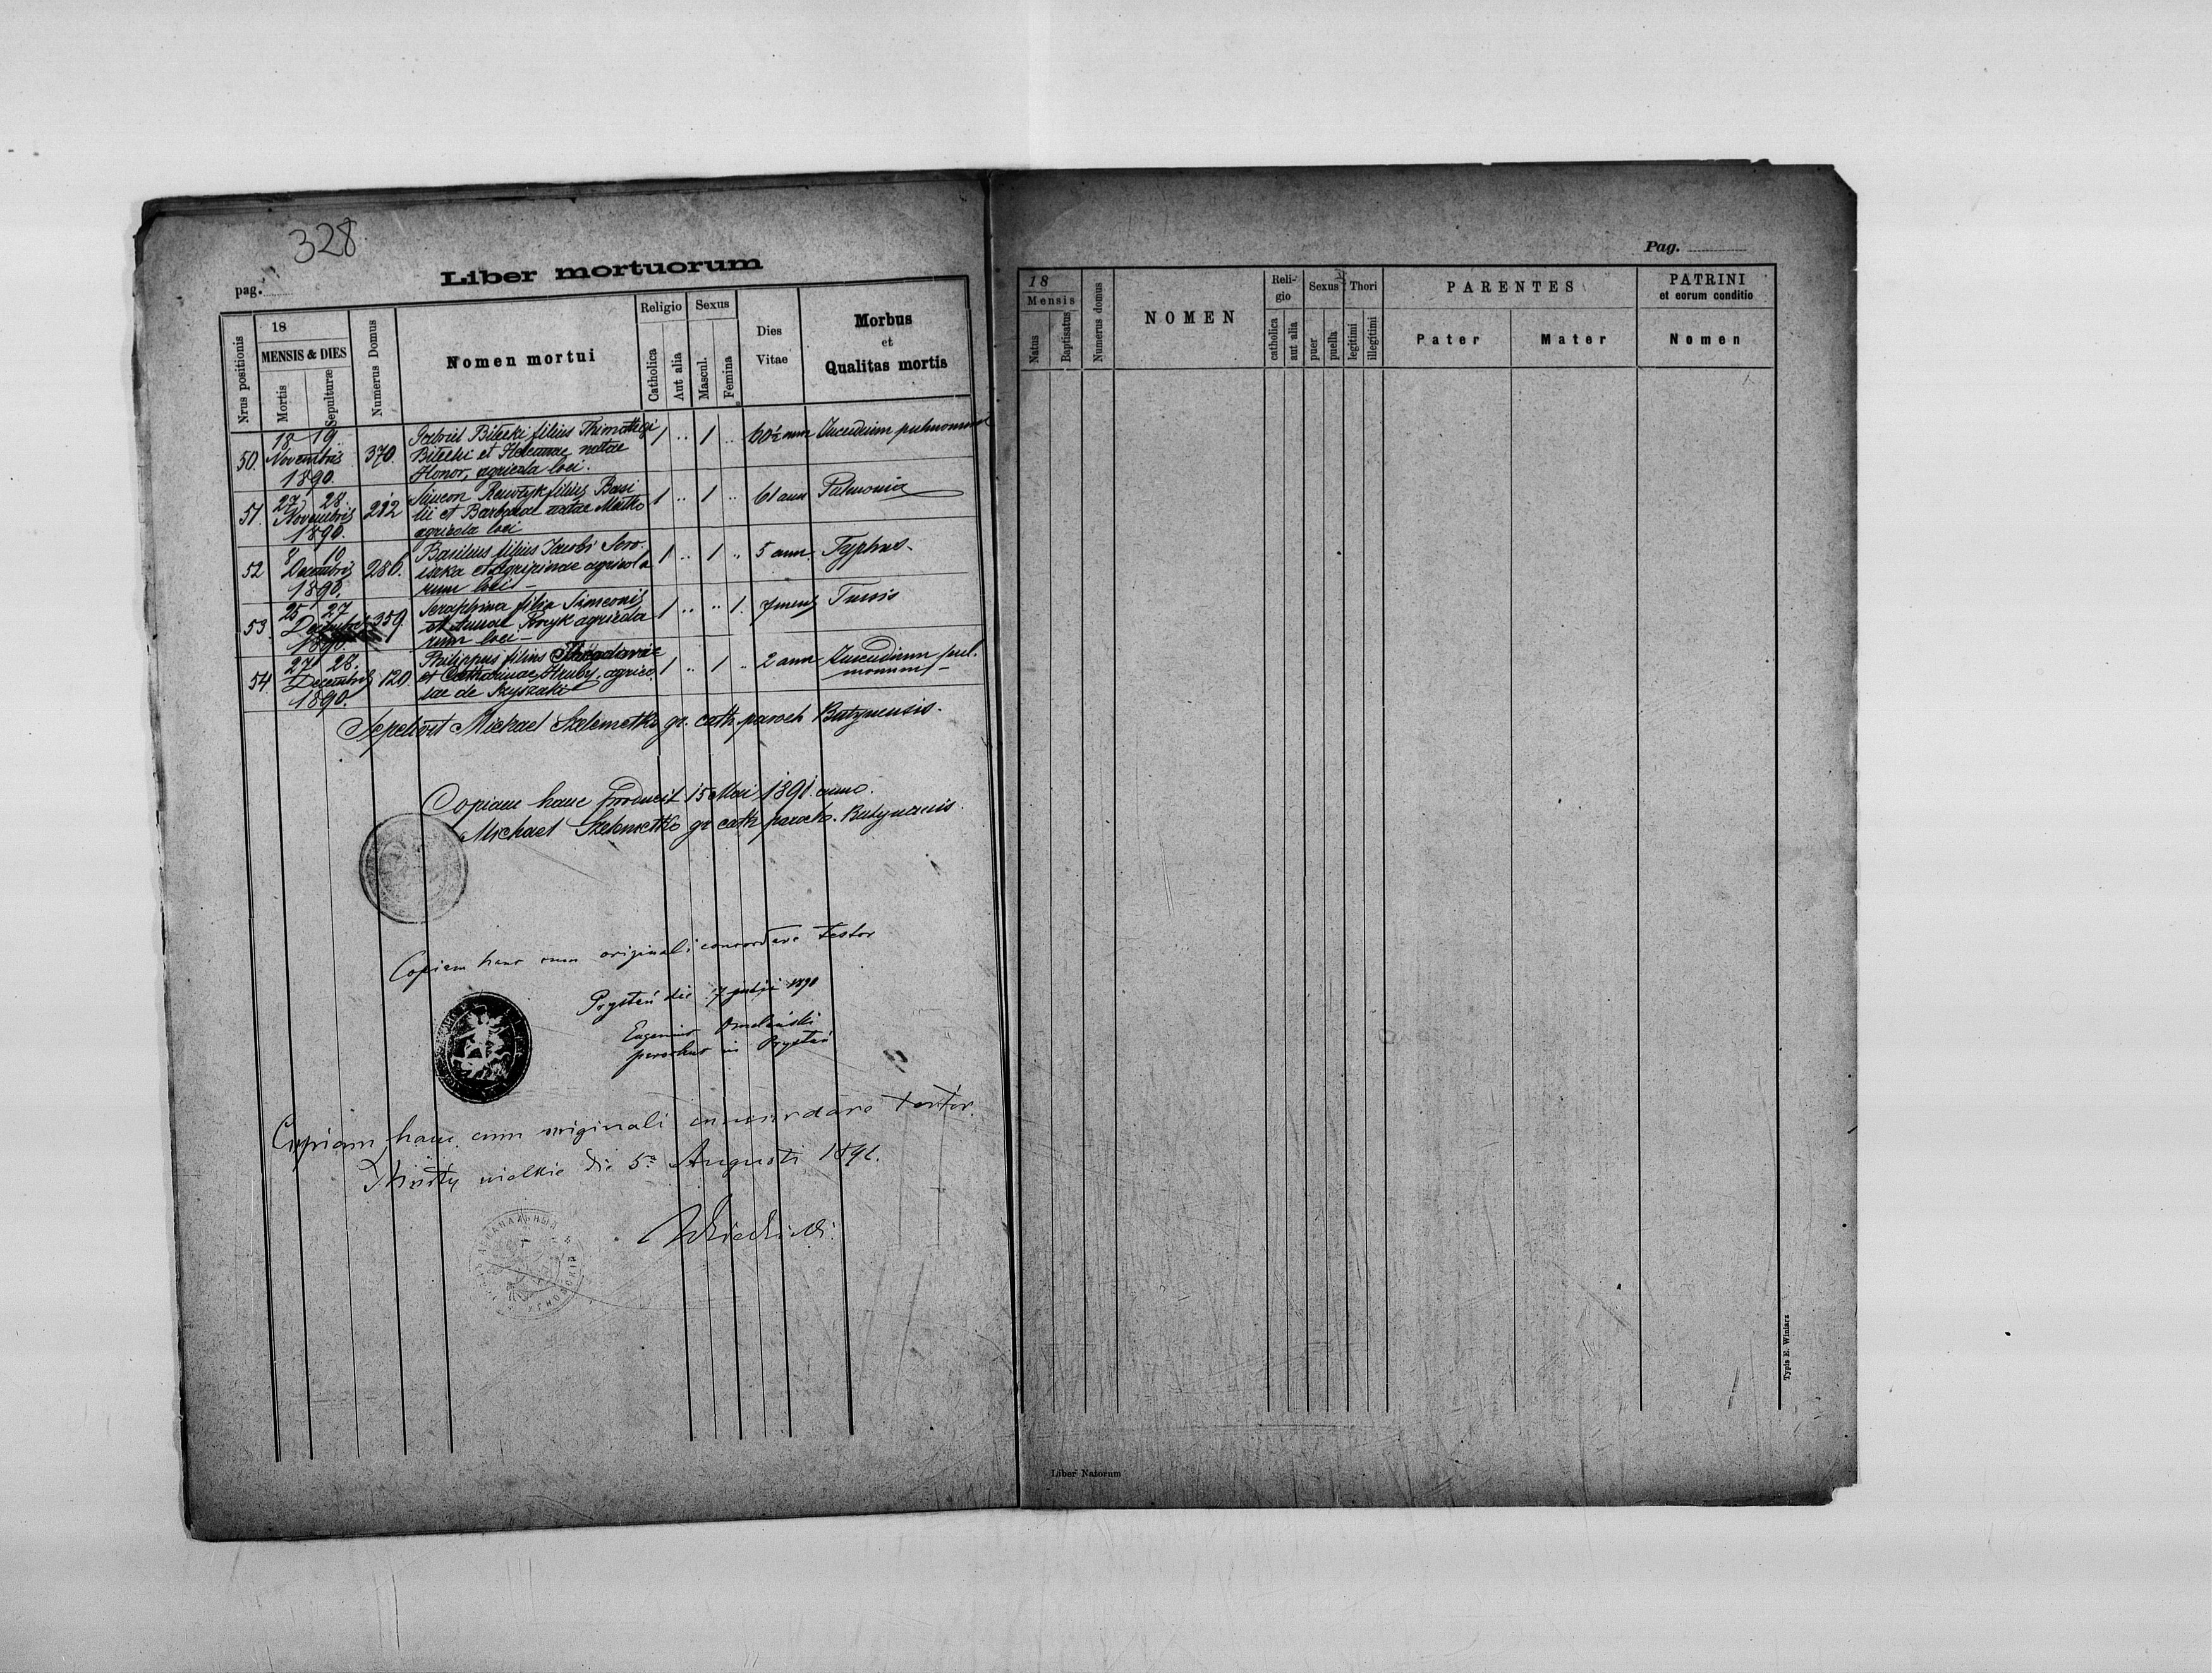 328
Liber mortuorum
pag.
Nrus positionis
18
MENSIS & DIES
Mortis
Sepulturæ
Numerus Domus
Nomen mortui
Religio
Catholica
Aut alia
Sexus
Mascul.
Femina
Dies
Vitae
Morbus
et
Qualitas mortis
50.
18 19
Novembris
1890.
370.
Gabriel Bilecki filius Thimothei
Bilecki et Helenae natae
Honor, agricola loci.
1 .. 1 .. 60½ ann Incendium pulmonum
51.
27 28
Novembris
1890.
212
Simeon filius Basi
lii et Barbarae natae
agricola loci
1 .. 1 .. 61 ann Pulmonia
52
8 10
Decembris
1890.
286.
Basilius filius Jacobi
et Agripinae agricola
rum loci -
1 .. 1 .. 5 ann. Typhus.
53.
25 27
Decembris
1890
359.
Seraphina filia Simeonis
et Annae agricola
rum loci -
1 .. .. 1. 7 mens Tussis
54
27 28.
Decembris
1890.
120.
Philippus filius Theodori
et Catharinae Hruby, agrico
lae de Szyszaki
1 .. 1 .. 2 ann Incendium pul
monum -
Sepelivit Michael Szelemetko gr. cath. paroch Butynensis.
Copiam hanc producit 15 Mai 1891 anno.
Michael Szelemetko gr cath paroch. Butynensis.
Copiam hanc cum originali concordare testor
Przystań die 17 1891
Eugenius Omelański
parochus in Przystań
Copiam hanc cum originali concordare testor.
Mosty wielkie die 5ª Augusti 1891.
Pag.
18
Mensis
Natus
Baptisatus
Numerus domus
NOMEN
Reli-
gio
catholica
aut alia
Sexus
puer
puella
Thori
legitimi
illegitimi
PARENTES
Pater
Mater
PATRINI
et eorum conditio
Nomen
Typis E. Winiarz
Liber Natorum